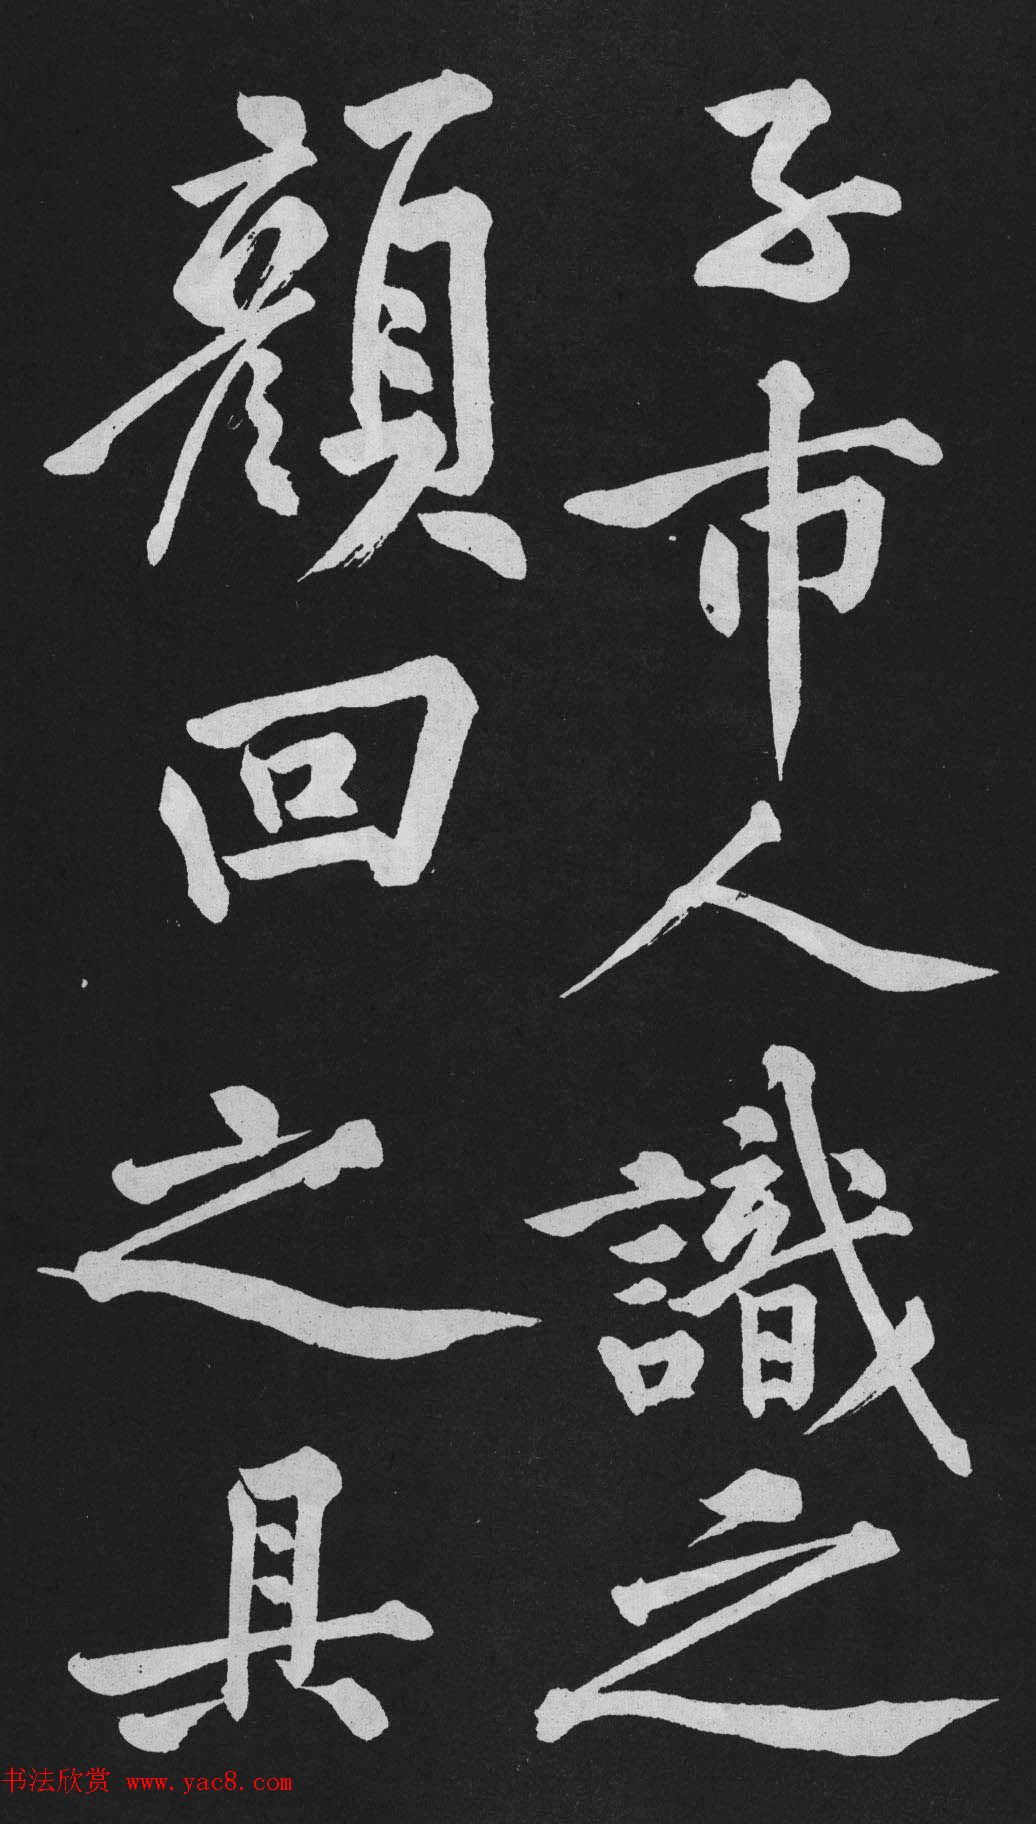 子市人識之
顏回之具
书法欣赏 www.yac8.com